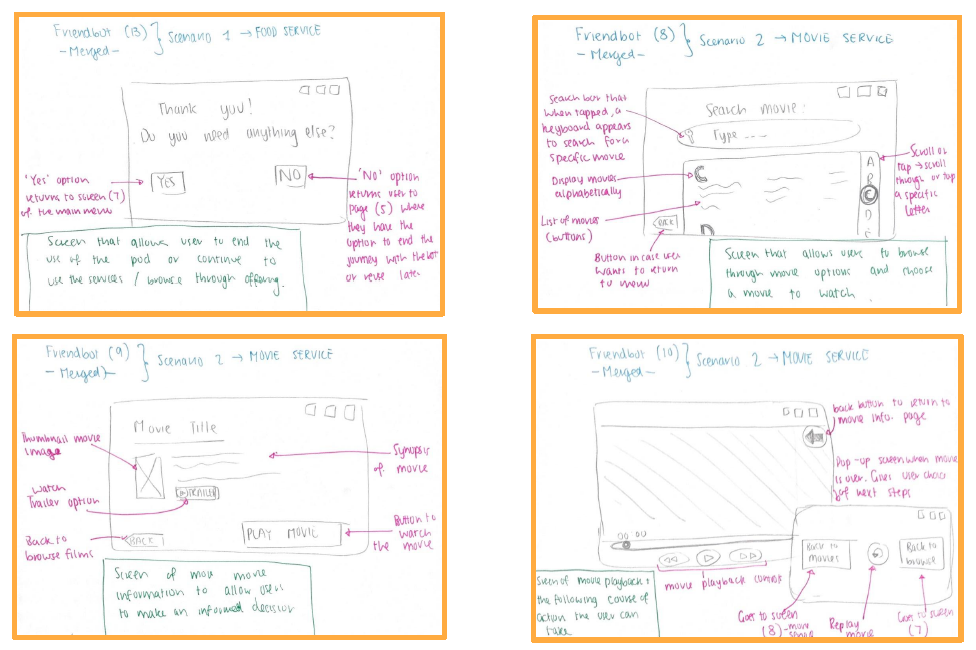 Friendbot (13) } Scenario 1 → FOOD SERVICE
- Merged -
Thank you!
Do you need anything else?
YES
NO
'Yes' option
returns to screen (7)
of the main menu
'NO' option
returns user to
page (5) where
they have the
option to end the
journey with the bot
or reuse later
Screen that allows user to end the
use of the pod or continue to
use the services / browse through offering.
Friendbot (8) } Scenario 2 → MOVIE SERVICE
- Merged -
Search bar that
when tapped, a
keyboard appears
to search for a
specific movie
Search movie:
Type ---
Display movies
alphabetically
List of movies
(buttons)
C
D
BACK
A
B
C
D
E
Scroll or
tap → scroll
through or tap
a specific
letter
Button in case user
wants to return
to menu
Screen that allows users to browse
through movie options and choose
a movie to watch.
Friendbot (9) } Scenario 2 → MOVIE SERVICE
- Merged -
Movie Title
Thumbnail movie
image
Synopsis
of movie
Watch
Trailer option
TRAILER
Back to
browse films
BACK
PLAY MOVIE
Button to
watch
the movie
Screen of movie
information to allow users
to make an informed decision
Friendbot (10) } Scenario 2 → MOVIE SERVICE
- Merged -
back button to return to
movie info. page
Pop-up screen when movie
is over. Gives user choice
of next steps
00:00
movie playback controls
Back to
movies
Back to
browse
Screen of movie playback &
the following course of
action the user can
take
Goes to screen
(8) - movie
Replay
movie
Goes to screen
(7)